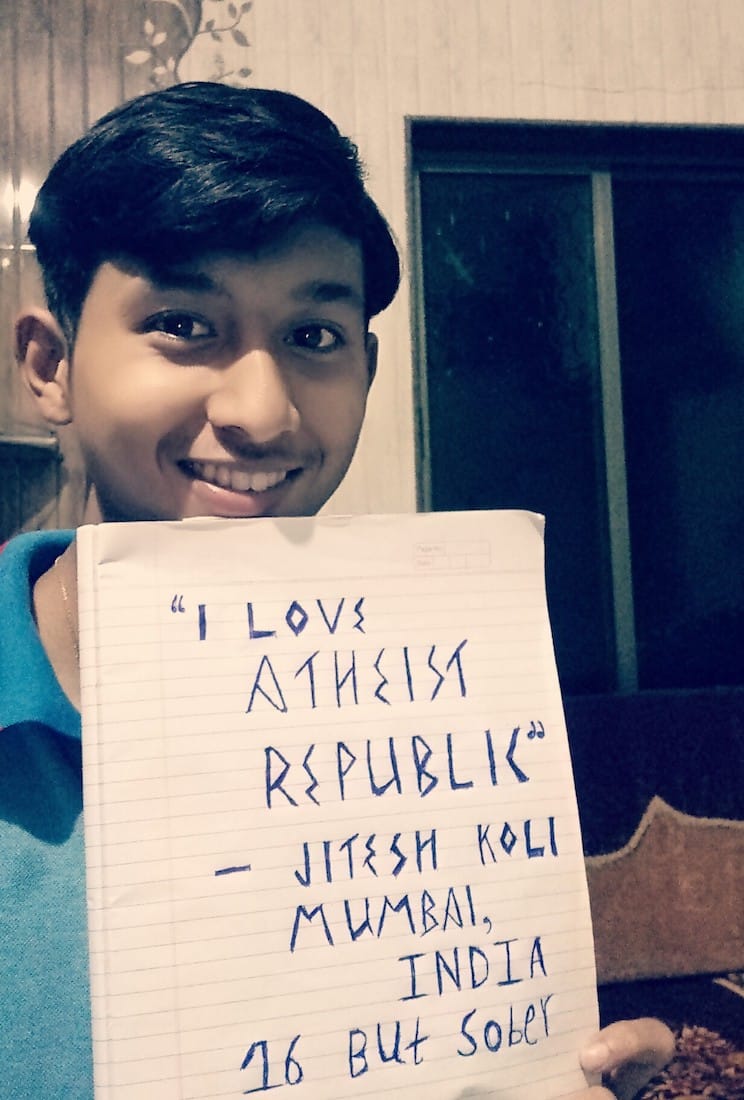 Page No.
Date
“I LOVE
ATHEIST
REPUBLIC”
– JITESH KOLI
MUMBAI,
INDIA
16 BUt SobeR